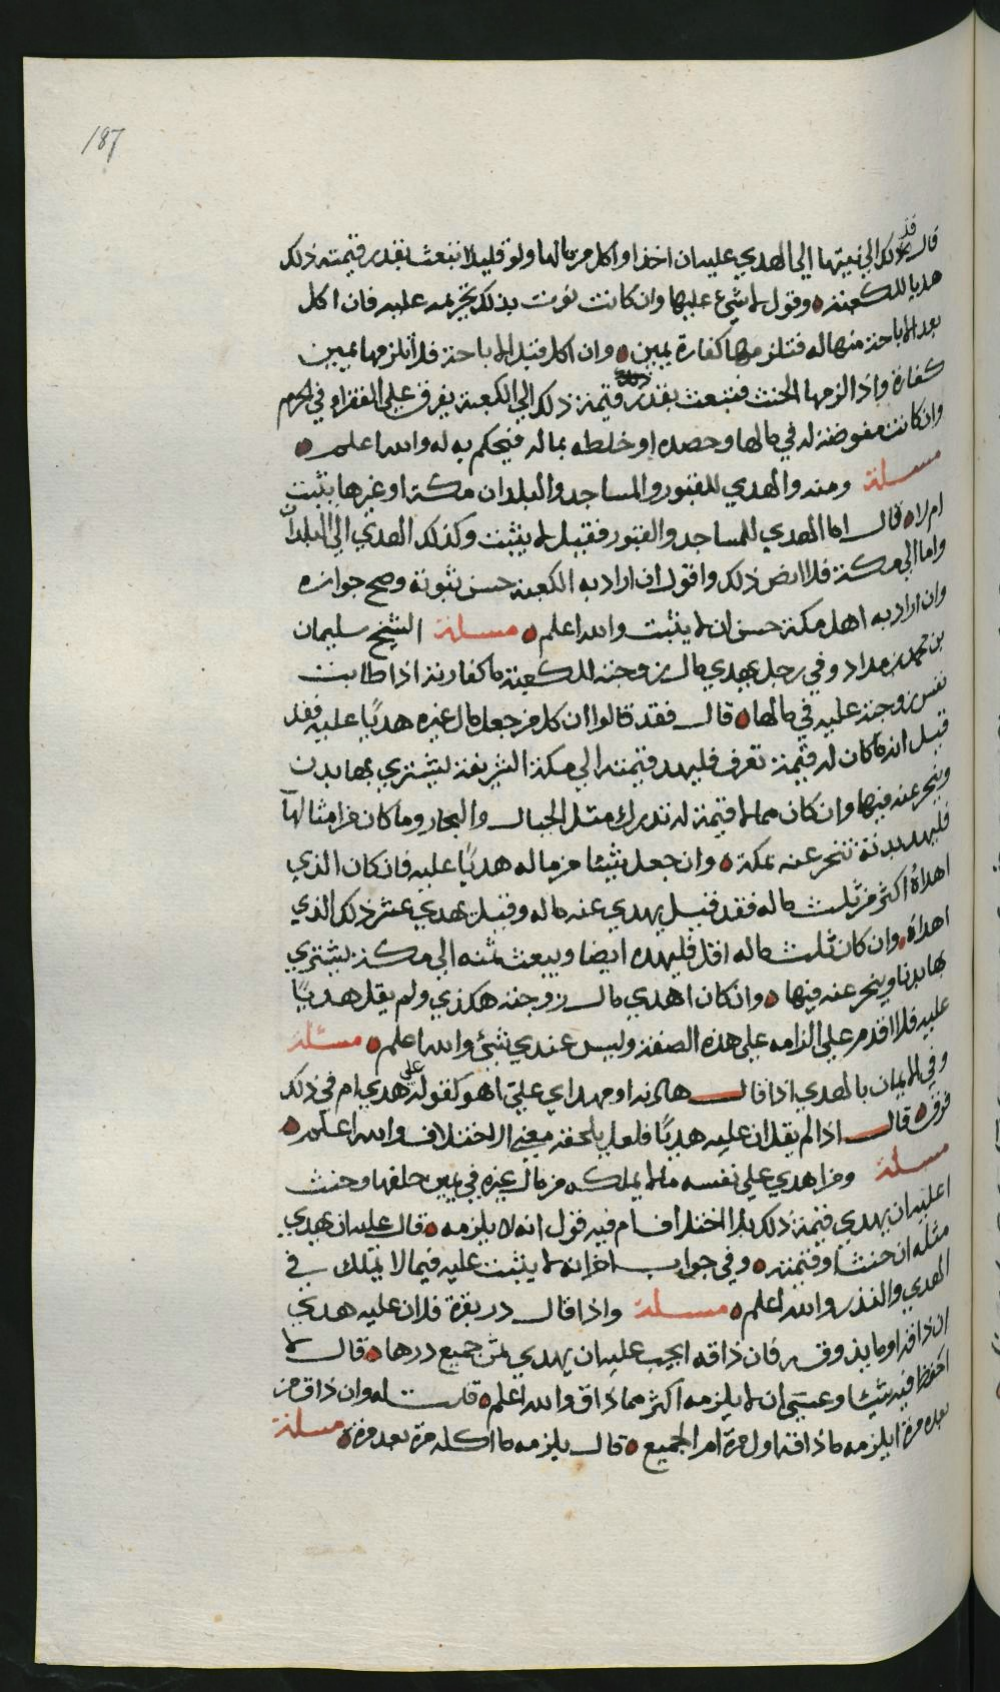 187
قال قد ذلك الي نيتها الي الهدي عليه ان اخذ او اكل من مالها ولو قليلا تبعث بقدر قيمته ذلك
هديا للكعبة وقول لا شيء عليها وان كانت نوت بذلك تحريمه عليه فان اكل
بعد الاباحة منها له فتلزمها كفارة يمين وان اكل قبل الاباحة فلا تلزمها يمين
كفارة واذا لزمها الحنث فتبعث بقدر قيمة ذلك الي الكعبة يفرق علي الفقراء في الحرم
وان كانت مفوضة له في مالها وحصده او خلطه بماله فيحكم به له والله اعلم
مسلة ومنه والهدي للقبور والمساجد والبلدان مكة او غيرها يثبت
ام لا قال اما الهدي للمساجد والقبور فقيل لا يثبت وكذلك الهدي الي البلدان
واما الي مكة فلا ابض ذلك واقول ان اراد به الكعبة حسن ثبوته وصح جوازه
وان اراد به اهل مكة حسن ان لا يثبت والله اعلم مسلة الشيخ سليمان
بن محمد بن مداد وفي رجل يهدي مال زوجته للكعبة ما كفارته اذا طابت
نفس زوجته عليه في مالها قال فقد قالوا ان كل من جعل مال غيره هديًا عليه فقد
قيل انه ما كان له قيمة تعرف فليهد قيمته الي مكة الشريفة ليشتري بها بدن
وينحر عنه فيها وان كان مما لا قيمة له تدرك مثل الجبال والبحار وما كان من امثالها
فليهد بدنة تنحر عنه بمكة وان جعل شيئا من ماله هديًا عليه فان كان الذي
اهداه اكثر من ثلث ماله فقد قيل يهدي عنه ماله وقيل يهدي عشر ذلك الذي
اهداه وان كان ثلث ماله اقل فليهده ايضا ويبعث ثمنه الي مكة يشتري
بها بدنا وينحر عنه فيها وان كان اهدي مال زوجته هكذي ولم يقل هديًا
عليه فلا اقدم علي الزامه علي هذه الصفة وليس عندي شيء والله اعلم مسئلة
وفي الايمان بالهدي اذا قال هاذا او مهداي علي اهو كقوله علي هدي ام في ذلك
فرق قال اذا لم يقل ان عليه هديًا فلعل يلحقه معني الاختلاف والله اعلم
مسلة ومن اهدي علي نفسه ما لا يملكه من مال غيره في يمين حلفها وحنث
اعليه ان يهدي قيمة ذلك بلا اختلاف ام فيه قول انه لا يلزمه قال عليه ان يهدي
مثله ان حنث او قيمته وفي جواب اخر انه لا يثبت عليه فيما لا يملك في
الهدي والنذر والله اعلم مسلة واذا قال در بقرة فلان عليه هدي
ان ذاقه او ما يذوقه فان ذاقه ايجب عليه ان يهدي ثمن جميع درها قال لا
احفظ فيه شيئا وعسي ان لا يلزمه اكثر مما ذاق والله اعلم قلت له وان ذاق من
بعده مرة ايلزمه ما ذاقه اول مرة ام الجميع قال يلزمه ما اكله مرة بعد مرة مسلة